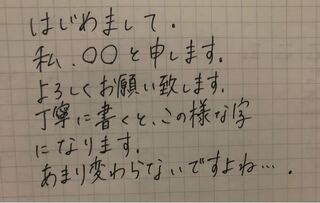 はじめまして.
私、○○と申します.
よろしくお願い致します.
丁寧に書くと、この様な字
になります.
あまり変わらないですよね….